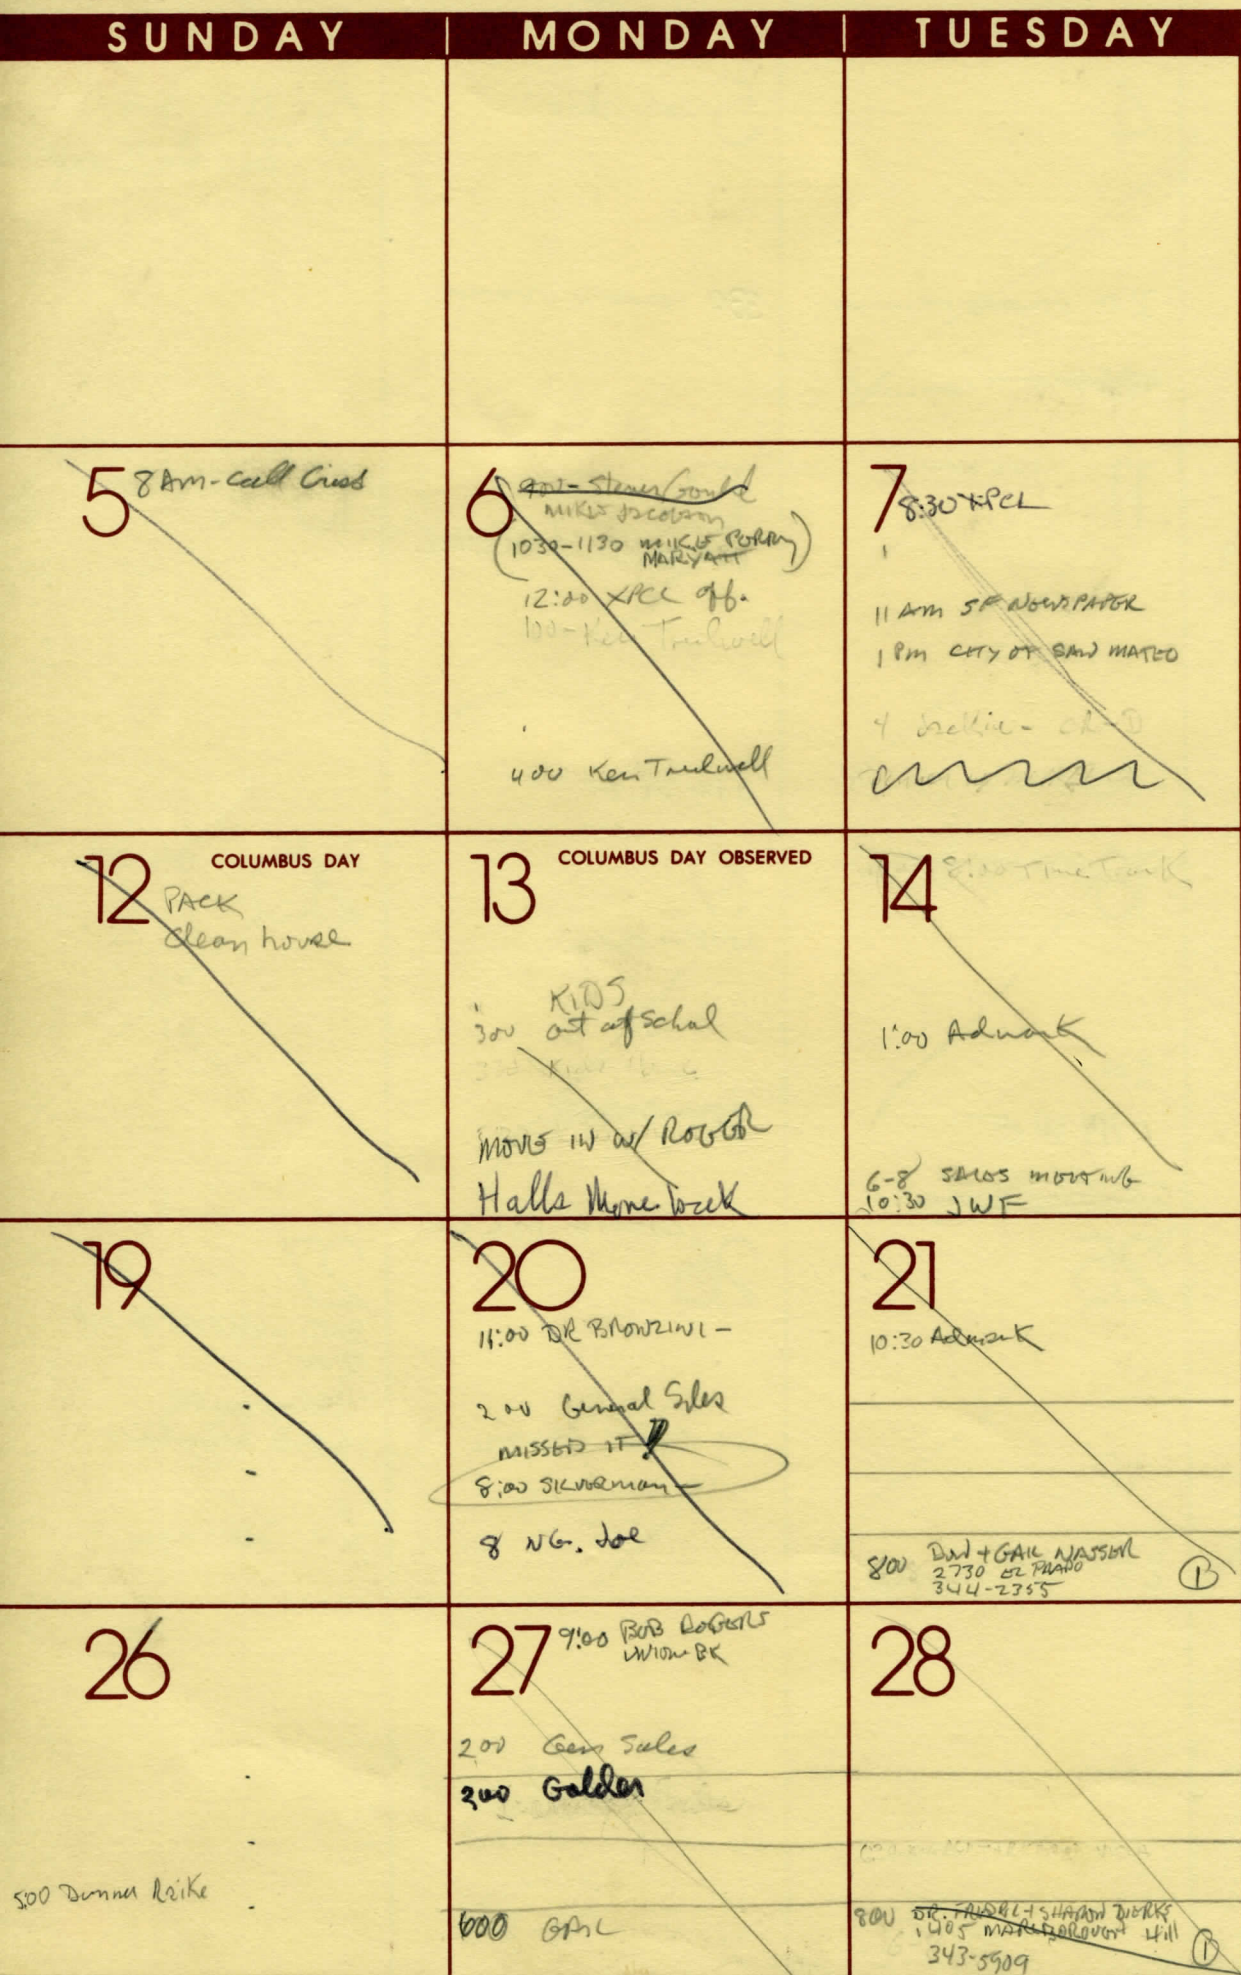 SUNDAY
MONDAY
TUESDAY
5
8 Am - Call
6
900 -
MIKE
(1030-1130 MIKE PERRY)
MARYATT
12:00 XPCL off.
100 - Ken
400 Ken
7
8:30 XPCL
11 Am SF NEWSPAPER
1 Pm CITY OF SAN MATEO
4 Jackie -
12
COLUMBUS DAY
PACK
Clean house
13
COLUMBUS DAY OBSERVED
KIDS
300 out of School
MOVE IN W/ ROGER
Halls Move back
14
8:00
1:00 Admark
6-8 SALES MEETING
10:30 JWF
19
20
11:00 DR BRONZINI -
200 General Sales
MISSED IT!
8:00 SILVERMAN -
8 NG. Joe
21
10:30 Admark
800 DON + GAIL NASSER
2730 EL PRADO
344-2355
B
26
500 Dinner
27
9:00 BOB ROGERS
UNION BK
200 Gen Sales
300 Golden
600 GAIL
28
800 DR. + SHARON DIERKS
1405 MARLBOROUGH Hill
343-5909
B